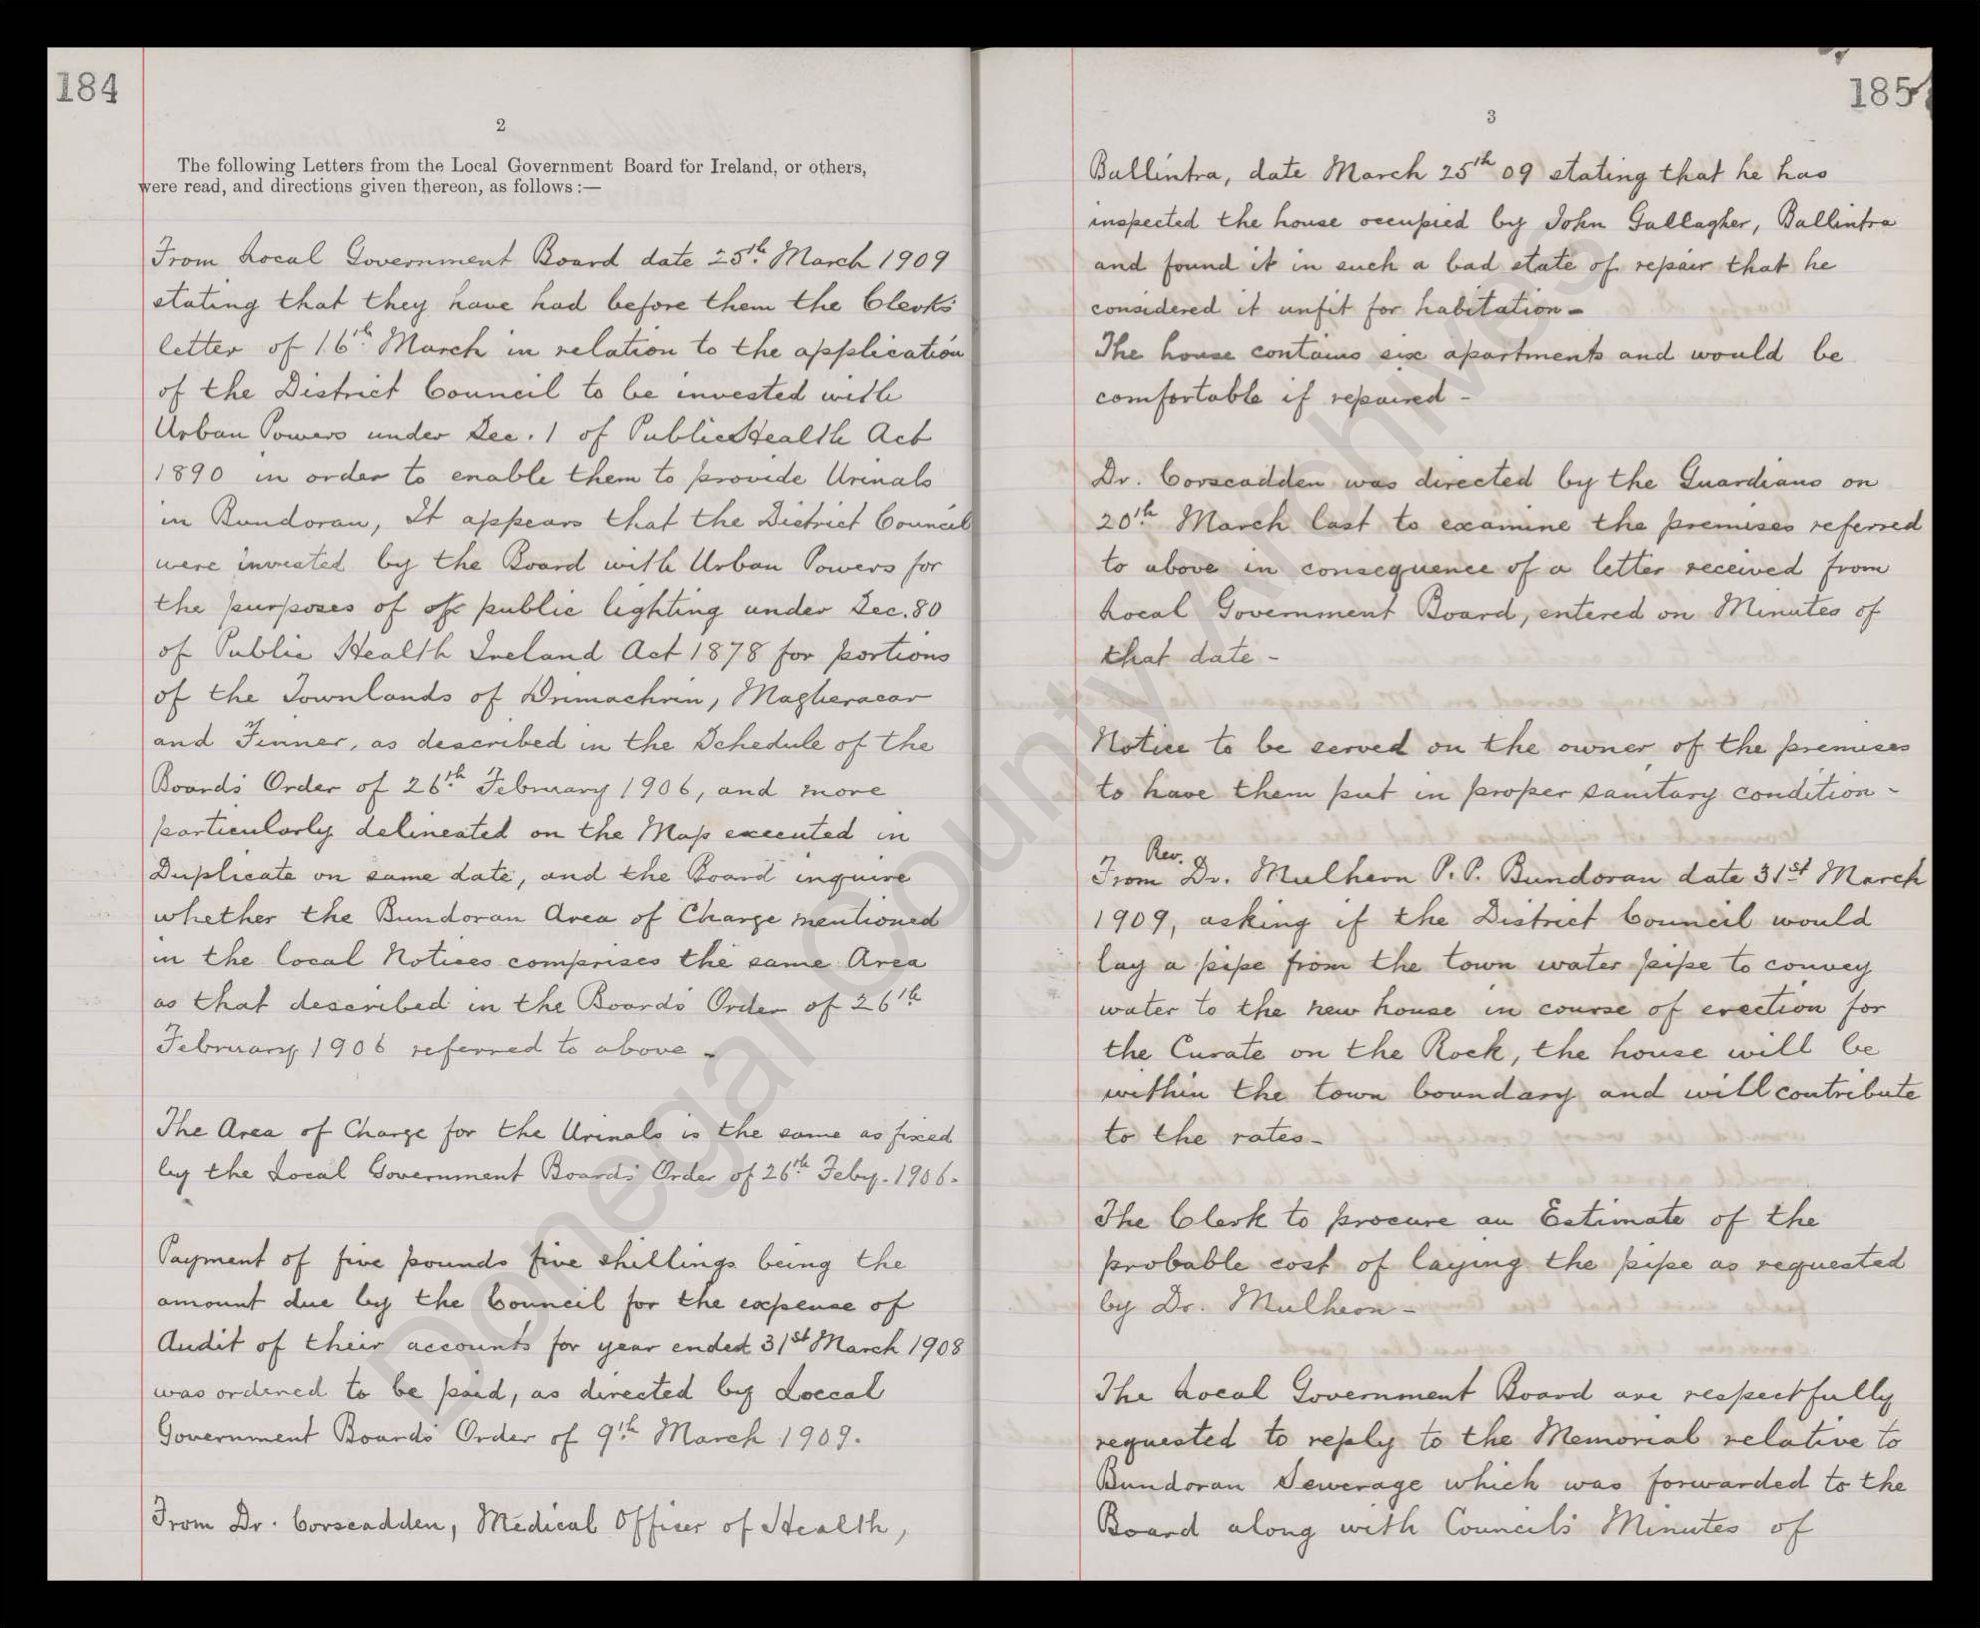 184
2
The following Letters from the Local Government Board for Ireland, or others,
were read, and directions given thereon, as follows :—
From Local Government Board date 25th. March 1909
stating that they have had before them the Clerk's
letter of 16th. March in relation to the application
of the District Council to be invested with
Urban Powers under Sec. 1 of Public Health Act
1890 in order to enable them to provide Urinals
in Bundoran, It appears that the District Council
were invested by the Board with Urban Powers for
the purposes of of public lighting under Sec. 80
of Public Health Ireland Act 1878 for portions
of the Townlands of Drimachrin, Magheracar
and Finner, as described in the Schedule of the
Boards' Order of 26th. February 1906, and more
particularly delineated on the Map executed in
Duplicate on same date, and the Board inquire
whether the Bundoran Area of Charge mentioned
in the local Notices comprises the same Area
as that described in the Boards' Order of 26th
February 1906 referred to above -
The Area of Charge for the Urinals is the same as fixed
by the Local Government Boards' Order of 26th. Feby. 1906.
Payment of five pounds five shillings being the
amount due by the Council for the expense of
Audit of their accounts for year ended 31st March 1908
was ordered to be paid, as directed by Loccal
Government Boards' Order of 9th. March 1909.
From Dr. Corscadden, Medical Officer of Health,
185
3
Ballintra, date March 25th 09 stating that he has
inspected the house occupied by John Gallagher, Ballintra
and found it in such a bad state of repair that he
considered it unfit for habitation -
The house contains six apartments and would be
comfortable if repaired -
Dr. Corscadden was directed by the Guardians on
20th. March last to examine the premises referred
to above in consequence of a letter received from
Local Government Board, entered on Minutes of
that date -
Notice to be served on the owner of the premises
to have them put in proper sanitary condition -
From Rev. Dr. Mulhern P.P. Bundoran date 31st March
1909, asking if the District Council would
lay a pipe from the town water pipe to convey
water to the new house in course of erection for
the Curate on the Rock, the house will be
within the town boundary and will contribute
to the rates -
The Clerk to procure an Estimate of the
probable cost of laying the pipe as requested
by Dr. Mulhern -
The Local Government Board are respectfully
requested to reply to the Memorial relative to
Bundoran Sewerage which was forwarded to the
Board along with Councils' Minutes of
Donegal County Archives